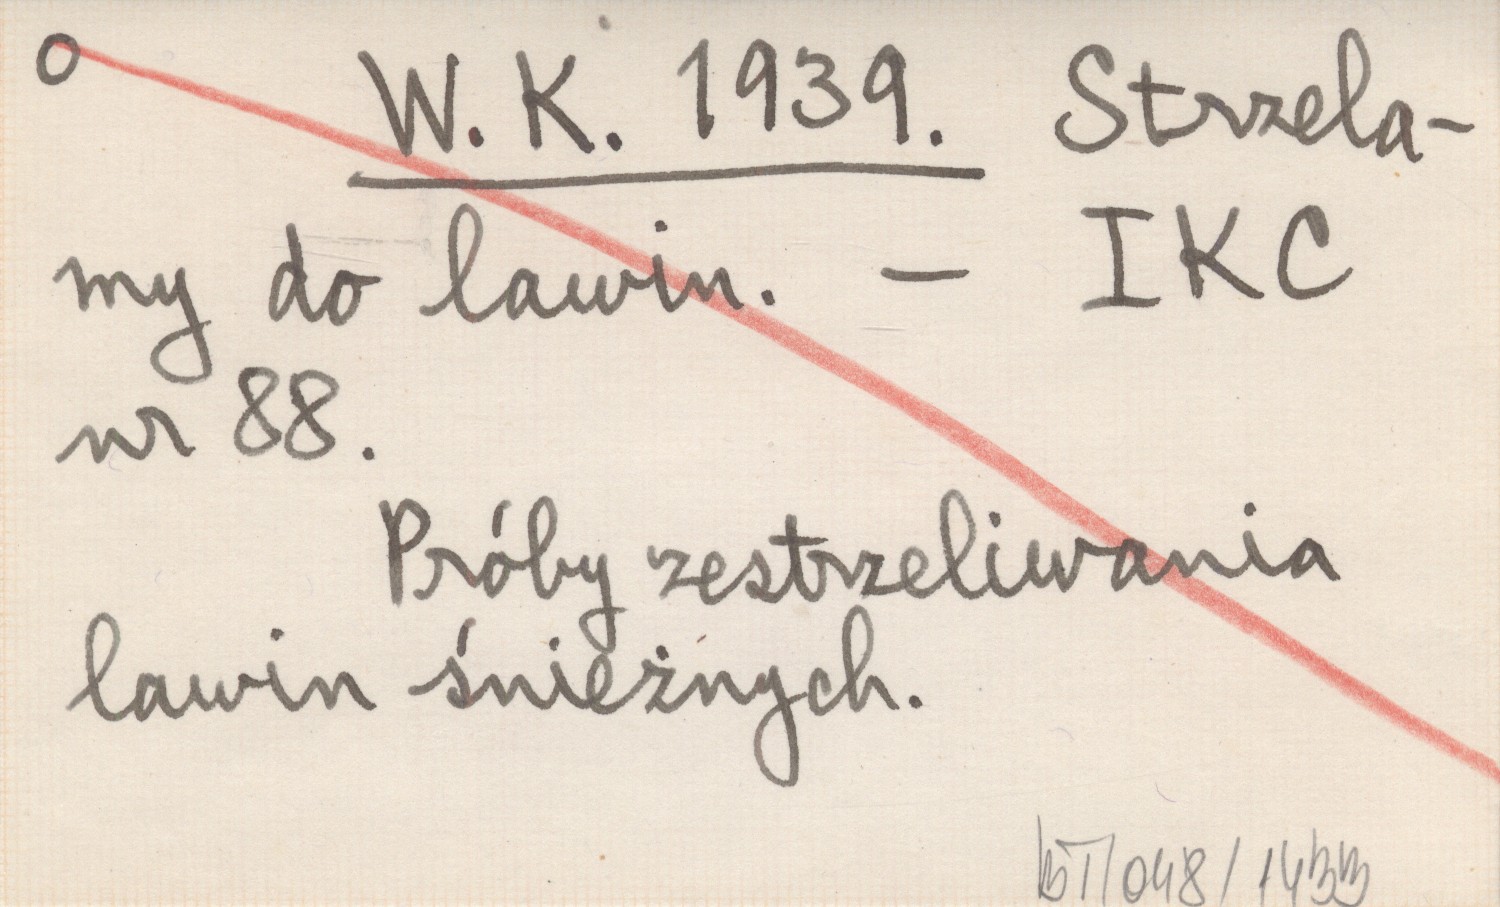 o W. K. 1939. Strzela-
my do lawin. — IKC
nr 88.
Próby zestrzeliwania
lawin śnieżnych.
BT/048/1433